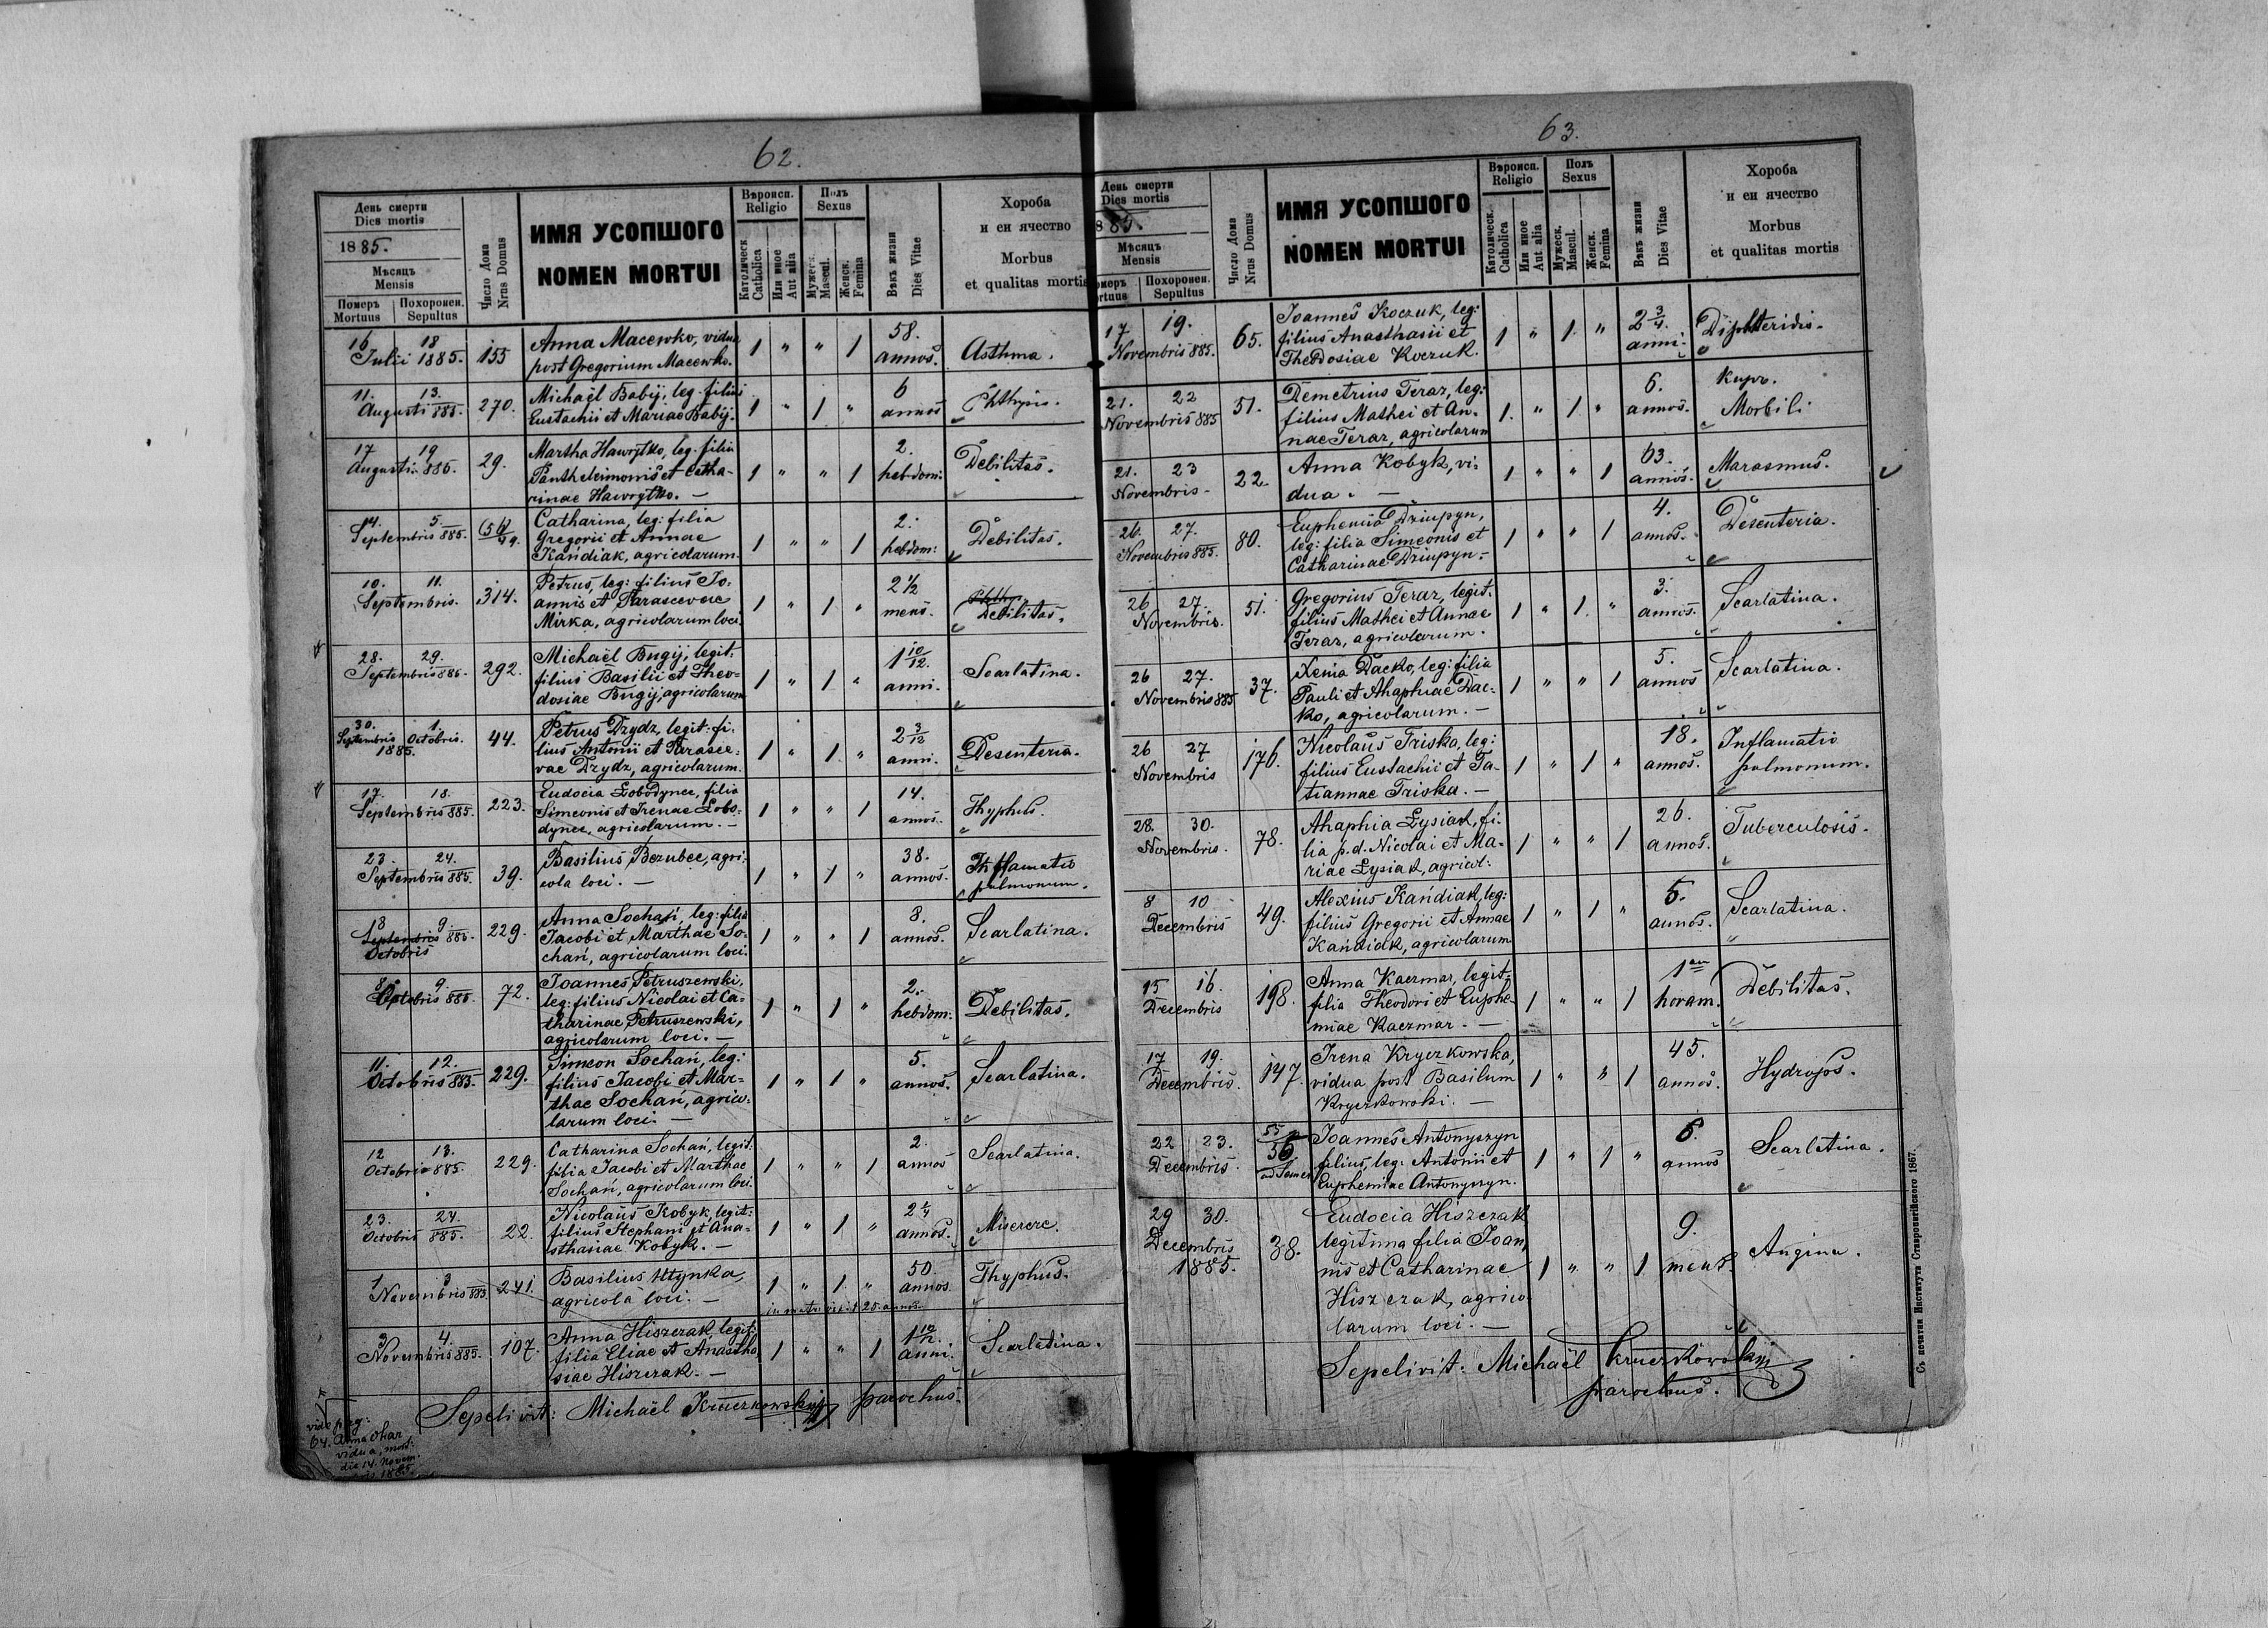 62.
День смерти
Dies mortis
1885.
Мѣсяць
Mensis
Померъ Mortuus
Похоронен. Sepultus
Число Дома
Nrus Domus
ИМЯ УСОПШОГО
NOMEN MORTUI
Вѣроисп.
Religio
Католическ.
Catholica
Или иное
Aut alia
Полъ
Sexus
Мужеск.
Mascul.
Женск.
Femina
Вѣкъ жизни
Dies Vitae
Хороба
и еи ячество
Morbus
et qualitas mortis
16 18 Julii 1885. 155 Anna Macewko, vidua 1 " " 1 58. annos. Asthma.
post Gregorium Macewko.
11. 13. Augusti 885. 270. Michaël Babij, leg. filius 1 " 1 " 6 annos Phthysis.
Eustachii et Mariae Babij.
17 19 Augusti 885. 29. Martha Hawrytko, leg. filia 1 " " 1 2. hebdom: Debilitas.
Pantheleimonis et Catha-
rinae Hawrytko. —
4. 5. Septembris 885. Catharina, leg: filia 1 " " 1 2. hebdom: Debilitas.
Gregorii et Annae
Kańdiak, agricolarum.
10. 11. Septembris. 314. Petrus, leg: filius Jo- 1 " 1 " 2 1/2 mens. Debilitas.
annis et Parascevae
Mirka, agricolarum loci.
28. 29. Septembris 885. 292. Michaël Bugij, legit: 1 " 1 " 1 10/12. anni. Scarlatina.
filius Basilii et Theo-
dosiae Bugij, agricolarum
30. Septembris 1. Octobris. 1885. 44. Petrus Dzydz, legit: fi- 1 " 1 " 2 3/12 anni. Desenteria.
lius Antonii et Parasce-
vae Dzydz, agricolarum.
17. 18. Septembris 885. 223. Eudocia Łobodynec, filia 1 " " 1 14. annos. Thyphus.
Simeonis et Irenae Łobo-
dynec, agricolarum. —
23. 24. Septembris 885. 39. Basilius Bezubec, agri- 1 " 1 " 38. annos. Inflamatio
cola loci. — pulmonum.
8 9. Septembris 885. Octobris 229. Anna Sochań, leg: filia 1 " " 1 8. annos. Scarlatina.
Jacobi et Marthae So-
chań, agricolarum loci.
8. 9. Octobris 885. 72. Joannes Petruszewski, 1 " 1 " 2. hebdom: Debilitas.
leg: filius Nicolai et Ca-
tharinae Petruszewski,
agricolarum loci. —
11. 12. Octobris 885. 229. Simeon Sochań, leg: 1 " 1 " 5. annos. Scarlatina.
filius Jacobi et Mar-
thae Sochań, agrico-
larum loci. —
12 13. Octobris 885. 229. Catharina Sochań, legit: 1 " " 1 2. annos Scarlatina.
filia Jacobi et Marthae
Sochań, agricolarum loci.
23. 24. Octobris 885. 22. Nicolaus Kobyk, legit: 1 " 1 " annos. Miserere.
filius Stephani et Ana-
sthasiae Kobyk. —
1 3 Novembris 885. 241. Basilius Hlynka, 1 " 1 " 50. annos Thyphus.
agricola loci. —
3 4. Novembris 885. 107. Anna Hiszczak, legit: 1 " " 1 1 10/12. anni. Scarlatina.
filia Eliae et Anastha
siae Hiszczak. —
Sepelivit: Michaël Kruczkowskyj parochus.
vide pag:
64. Anna Ohar
vidua, mort:
die 14. Novem-
1885.
63.
День смерти
Dies mortis
Мѣсяць
Mensis
Похоронен.
Sepultus
Число Дома
Nrus Domus
ИМЯ УСОПШОГО
NOMEN MORTUI
Вѣроисп.
Religio
Католическ.
Catholica
Или иное
Aut alia
Полъ
Sexus
Мужеск.
Mascul.
Женск.
Femina
Вѣкъ жизни
Dies Vitae
Хороба
и еи ячество
Morbus
et qualitas mortis
17 19. Novembris 885. 65. Joannes Koczuk, leg: 1 " 1. " 2 3/4. anni. Diphteridis.
filius Anasthasii et
Theodosiae Koczuk.
21. 22 Novembris 885 51. Demetrius Teraz, leg: 1. " 1 " 6. annos. Kupr.
filius Mathei et An- Morbili
nae Teraz, agricolarum
21. 23 Novembris 22. Anna Kobyk, vi- 1 " " 1 63. annos. Marasmus.
dua. —
26. 27. Novembris 885. 80. Euphemia Dziupyn, 1 " " 1 4. annos. Desenteria.
leg: filia Simeonis et
Catharinae Dziupyn. —
26 27. Novembris. 51. Gregorius Teraz, legit. 1 " 1. " 3. annos. Scarlatina.
filius Mathei et Annae
Teraz, agricolarum.
26 27. Novembris 885 37. Xenia Dacko, leg: filia 1 " " 1 5. annos Scarlatina.
Pauli et Ahaphiae Dac-
ko, agricolarum. —
26 27 Novembris 176. Nicolaus Triska, leg: 1 " 1 " 18. annos. Inflamatio
filius Eustachii et Ta- pulmonum.
tiannae Triska. —
28. 30. Novembris. 78. Ahaphia Łysiak, fi- 1 " " 1 26. annos. Tuberculosis.
lia p.d. Nicolai et Ma-
riae Łysiak, agricol:
8 10 Decembris 49. Alexius Kańdiak, leg: 1 " 1 " 5. annos. Scarlatina.
filius Gregorii et Annae
Kańdiak, agricolarum
15 16. Decembris 198. Anna Kaczmar, legit: 1 " " 1 1am horam. Debilitas.
filia Theodori et Euphe-
miae Kaczmar. —
17 19. Decembris. 147. Irena Kryczkowska, 1 " " 1 45. annos. Hydrops.
vidua post Basilum
Kryczkowski. —
22 23. Decembris. 55 56 Joannes Antonyszyn 1 " 1 " 6. annos Scarlatina.
filius, leg: Antonii et
Euphemiae Antonyszyn.
29 30. Decembris 1885. 38. Eudocia Hiszczak 1 " " 1 9. mens. Angina.
legitima filia Joan
nis et Catharinae
Hiszczak, agrico
larum loci. —
Sepelivit: Michaël Kruczkowskyj
parochus.
Съ печатни Института Ставропигійского 1867.